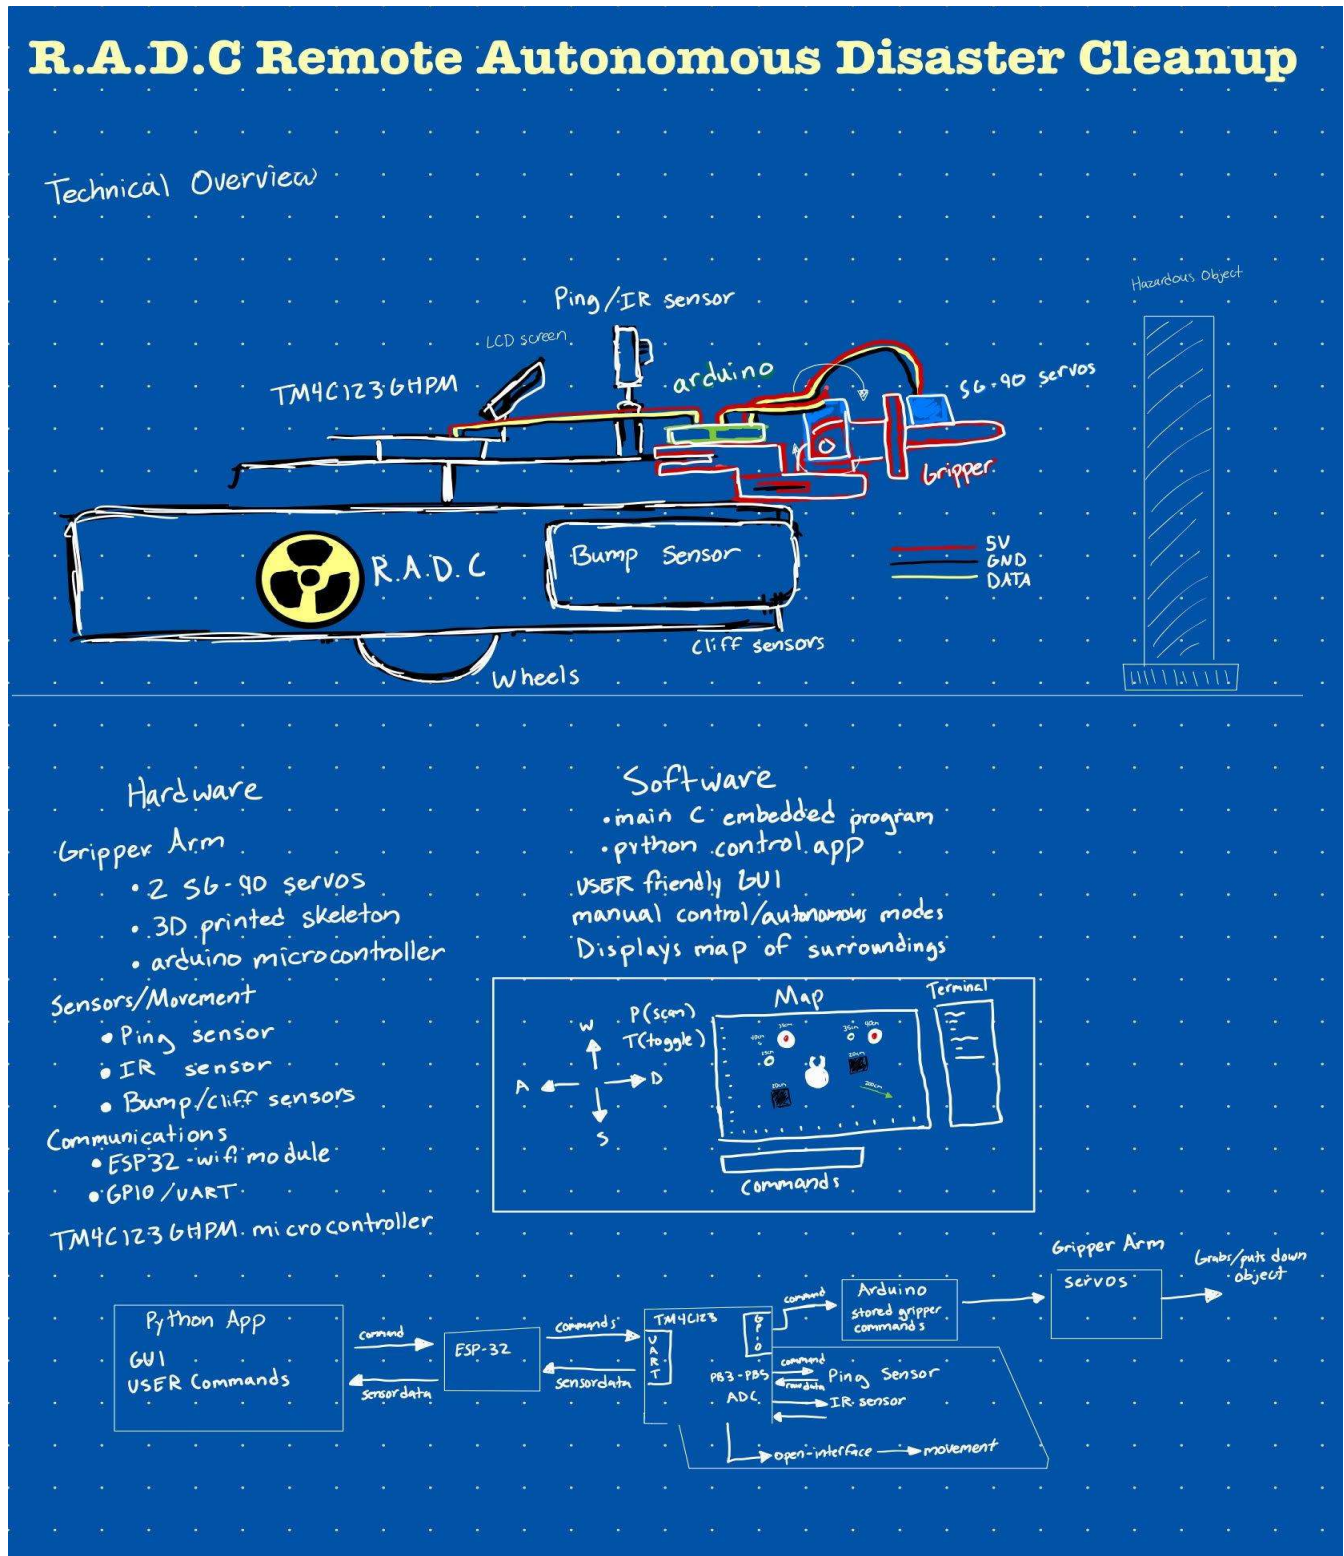 R.A.D.C Remote Autonomous Disaster Cleanup
Technical Overview
Hazardous Object
Ping/IR sensor
LCD screen
TM4C123GHPM
arduino
SG-90 servos
Gripper
Bump Sensor
R.A.D.C
5V
GND
DATA
Cliff sensors
Wheels
Hardware
Gripper Arm
• 2 SG-90 servos
• 3D printed skeleton
• arduino microcontroller
Sensors/Movement
• Ping sensor
• IR sensor
• Bump/cliff sensors
Communications
• ESP32-wifi module
• GPIO/UART
TM4C123GHPM microcontroller
Software
• main C embedded program
• python control app
USER friendly GUI
manual control/autonomous modes
Displays map of surroundings
W
A
D
S
P(scan)
T(toggle)
Map
Terminal
commands
Python App
GUI
USER Commands
command
sensordata
ESP-32
commands
sensordata
TM4C123
UART
GPIO
PB3-PB5
ADC
command
Arduino
stored gripper
commands
Gripper Arm
servos
Grabs/puts down
object
command
rawdata
Ping Sensor
IR sensor
open-interface
movement